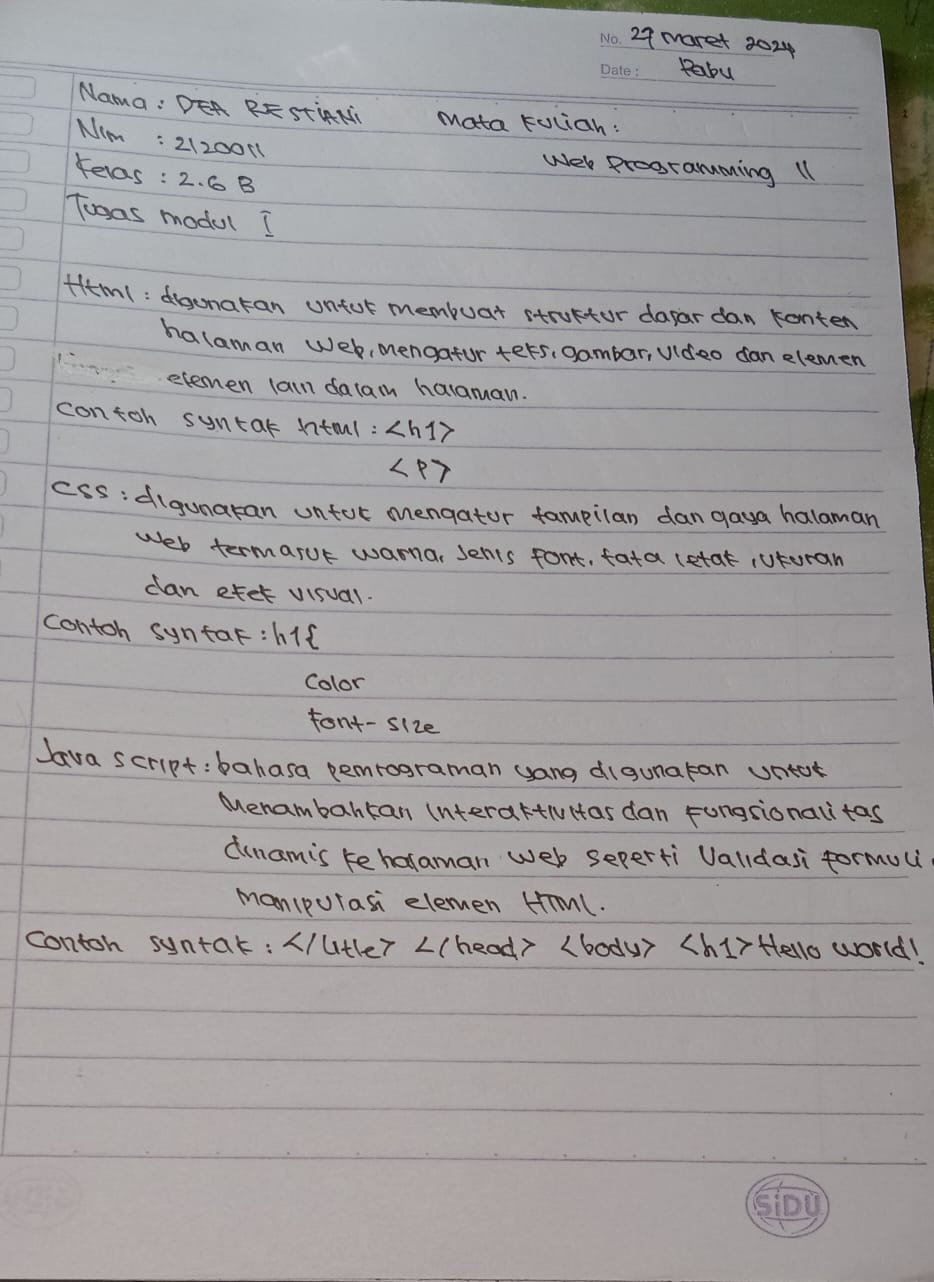 No. 27 Maret 2024
Date: Rabu
Nama : DEA RESTIANI Mata Kuliah :
Nim : 2120011 Web Programming II
Kelas : 2.6 B
Tugas modul I
Html : digunakan untuk membuat struktur dasar dan konten
halaman web, mengatur teks, gambar, video dan elemen
elemen lain dalam halaman.
Contoh syntak html : <h1>
<p>
CSS : digunakan untuk mengatur tampilan dan gaya halaman
web termasuk warna, jenis font, tata letak, ukuran
dan efek visual.
Contoh syntak : h1{
Color
font-size
Java script : bahasa pemrograman yang digunakan untuk
Menambahkan interaktivitas dan fungsionalitas
dinamis ke halaman web seperti Validasi formuli
manipulasi elemen HTML.
Contoh syntak : </title> </head> <body> <h1> Hello world!
SiDU